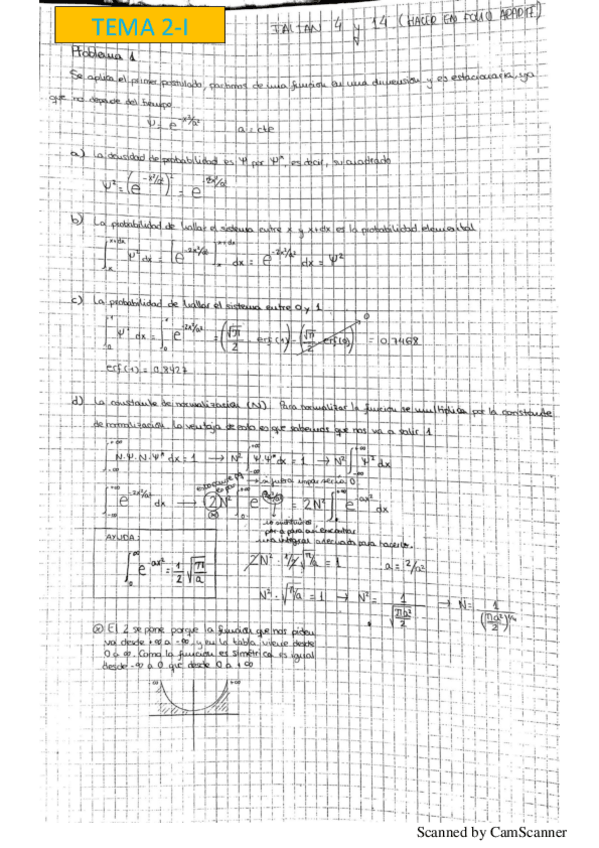 TEMA 2-I
FALTAN 4 y 14 (HACER EN FOLIO APARTE)
Problema 1
Se aplica el primer postulado, partimos de una función en una dimensión y es estacionaria, ya
que no depende del tiempo.
Ψ = e^(-x²/a²)   a = cte
a) La densidad de probabilidad es Ψ por Ψ*, es decir, su cuadrado
Ψ² = (e^(-x²/a²))² = e^(-2x²/a²)
b) La probabilidad de hallar el sistema entre x y x+dx es la probabilidad elemental
∫ₓ^(x+dx) Ψ² dx = [e^(-2x²/a²)]ₓ^(x+dx) dx = e^(-2x²/a²) dx = Ψ²
c) La probabilidad de hallar el sistema entre 0 y 1
∫₀¹ Ψ² dx = ∫₀¹ e^(-2x²/a²) = (√π/2 erf(1)) - (√π/2 erf(0)) = 0,7468
0
erf(1) = 0,8427
d) La constante de normalización (N). Para normalizar la función se multiplica por la constante
de normalización. La ventaja de esto es que sabemos que nos va a salir 1
∫₋∞^(+∞) N·Ψ·N·Ψ* dx = 1 → N² ∫₋∞^(+∞) Ψ·Ψ* dx = 1 → N² ∫₋∞^(+∞) Ψ² dx
→ si fuera impar sería 0
∫₋∞^(+∞) e^(-2x²/a²) dx → 2N² ∫₀^(+∞) = 2N² ∫₀^(+∞) e^(-ax²) dx
lo sustituimos
por a para así encontrar
una integral adecuada para hacerlo.
AYUDA:
∫₀^(+∞) e^(-ax²) = 1/2 √(π/a)
2N² · 1/2 √(π/a) = 1   a = 2/a²
N² · √(π/a) = 1 → N² = 1/√(πa²/2) → N = 1/(πa²/2)^(1/4)
⊗ El 2 se pone porque la función que nos piden
va desde +∞ a -∞, y en la tabla viene desde
0 a ∞. Como la función es simétrica es igual
desde -∞ a 0 que desde 0 a +∞
-∞ +∞
Scanned by CamScanner